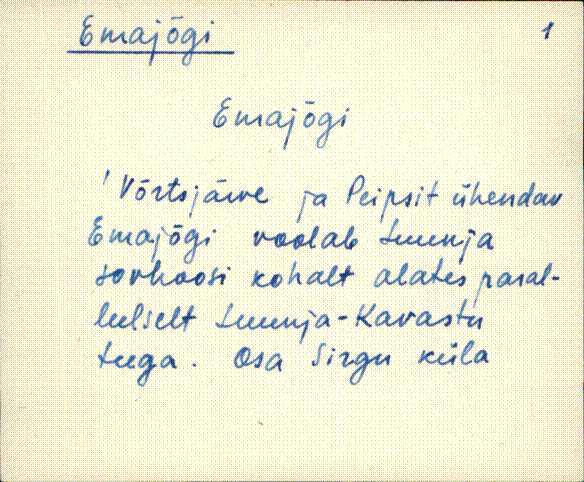 Emajõgi
1
Emajõgi
Võrtsjärve ja Peipsit ühendav
Emajõgi voolab Luunja
sovhoosi kohalt alates paral-
leelselt Luunja-Kavastu
teega. Osa Sirgu küla